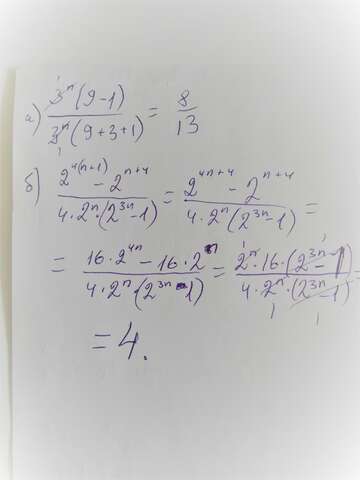 а) 3ⁿ(9-1) / 3ⁿ(9+3+1) = 8/13
б) 2⁴⁽ⁿ⁺¹⁾ - 2ⁿ⁺⁴ / 4·2ⁿ·(2³ⁿ-1) = 2⁴ⁿ⁺⁴ - 2ⁿ⁺⁴ / 4·2ⁿ(2³ⁿ-1) =
= 16·2⁴ⁿ - 16·2ⁿ / 4·2ⁿ·(2³ⁿ-1) = 2ⁿ·16·(2³ⁿ-1) / 4·2ⁿ·(2³ⁿ-1) =
= 4.